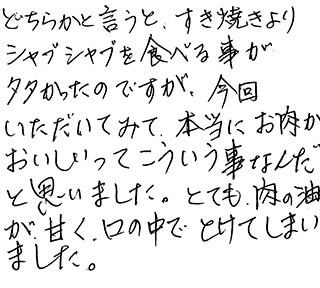 どちらかと言うと、すき焼きより
シャブシャブを食べる事が
多かったのですが、今回
いただいてみて、本当にお肉が
おいしいってこういう事なんだ
と思いました。とても、肉の油
が、甘く、口の中でとけてしまい
ました。